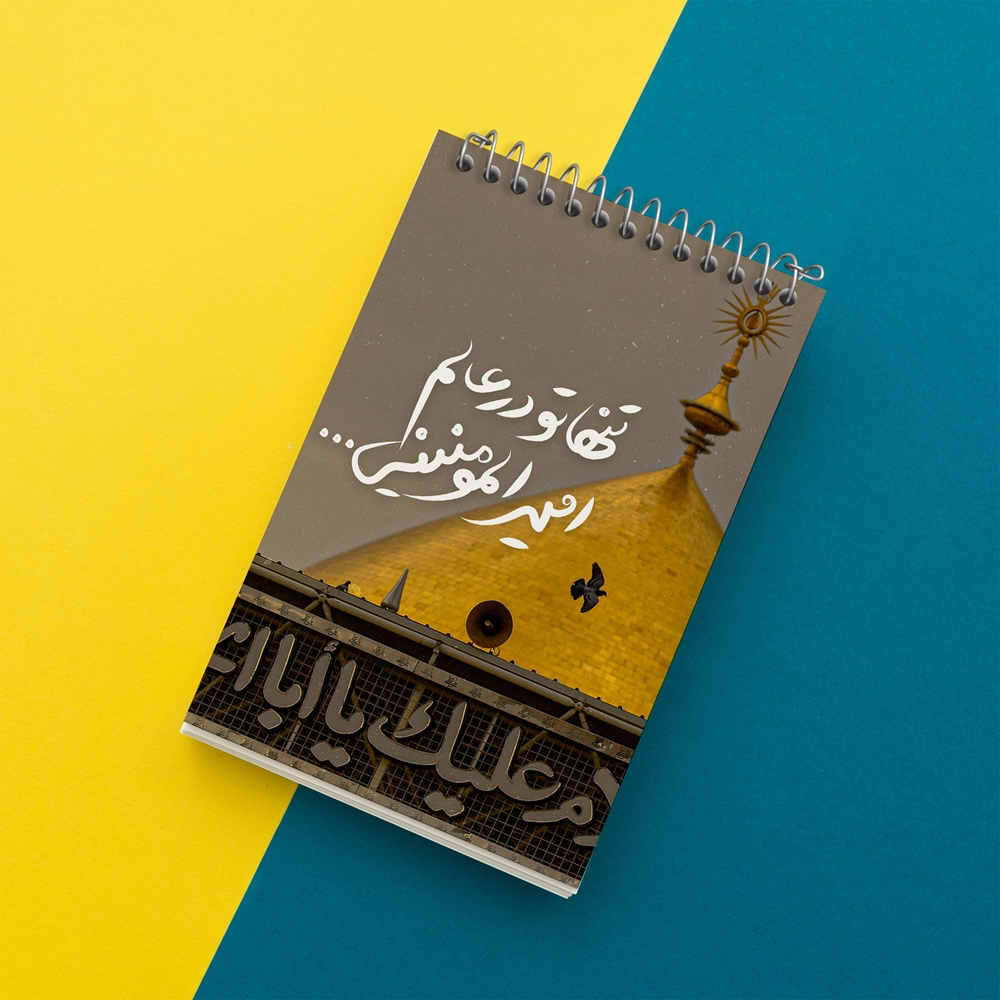 تنها تو در عالم
امیرالمومنینی...
م عليك يا أبا ا